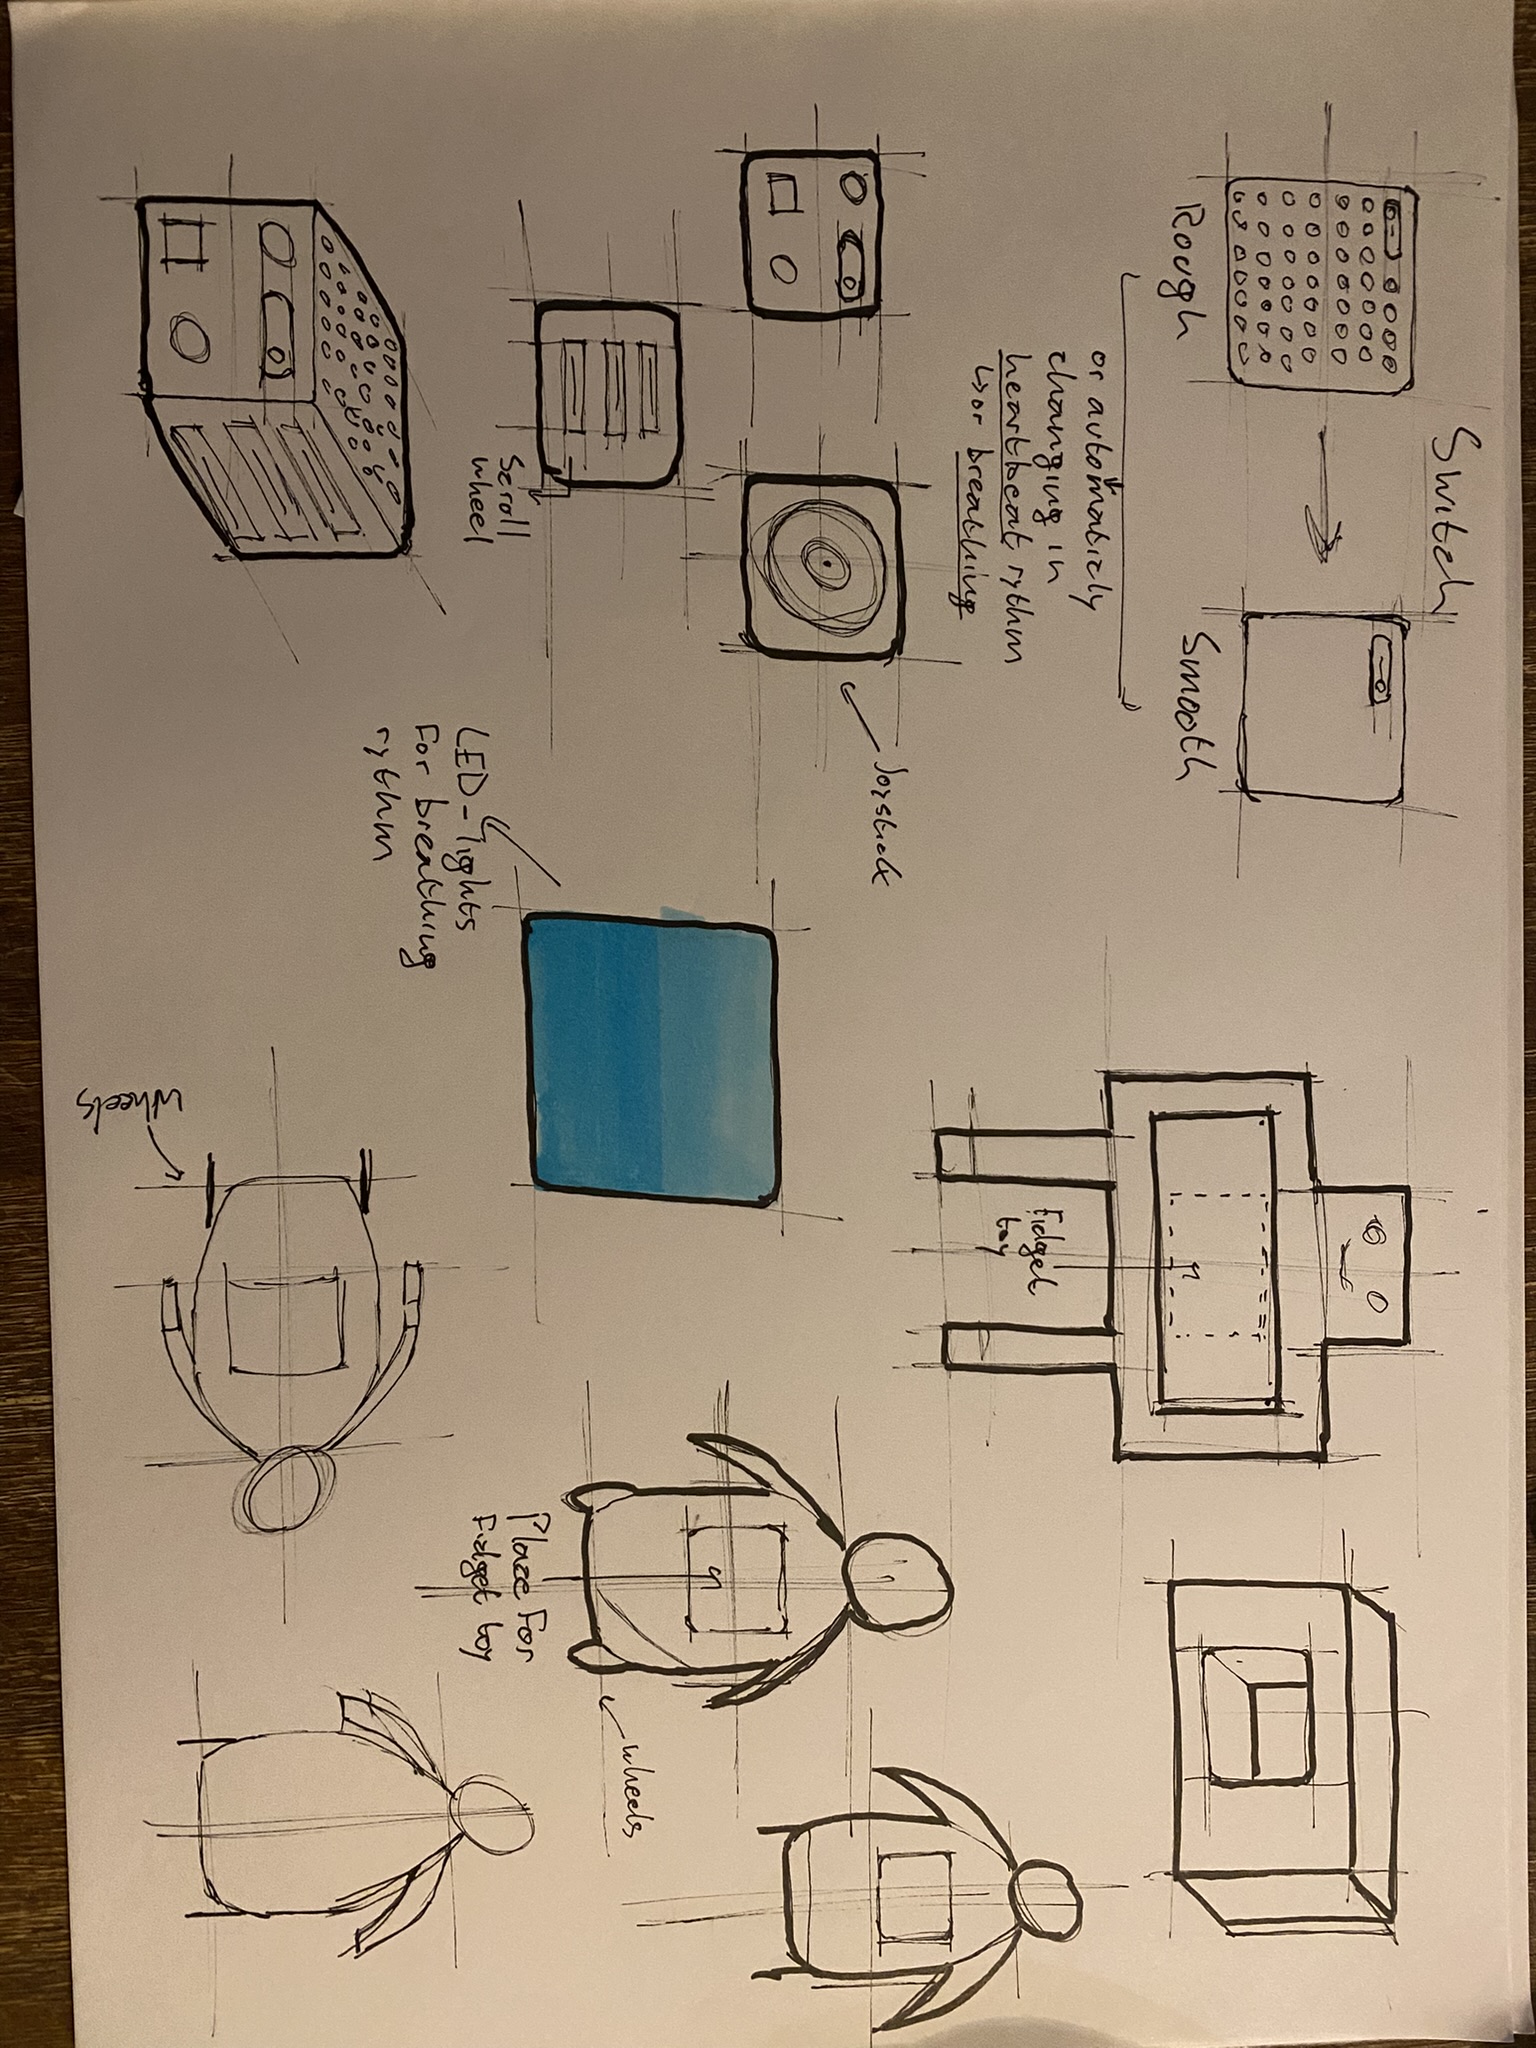 Switch
Rough
Smooth
or automaticly
changing in
heartbeat rythm
↳or breathing
Joystick
Scroll
wheel
LED-lights
For breathing
rythm
Fidget
toy
wheels
Place For
Fidget toy
wheels